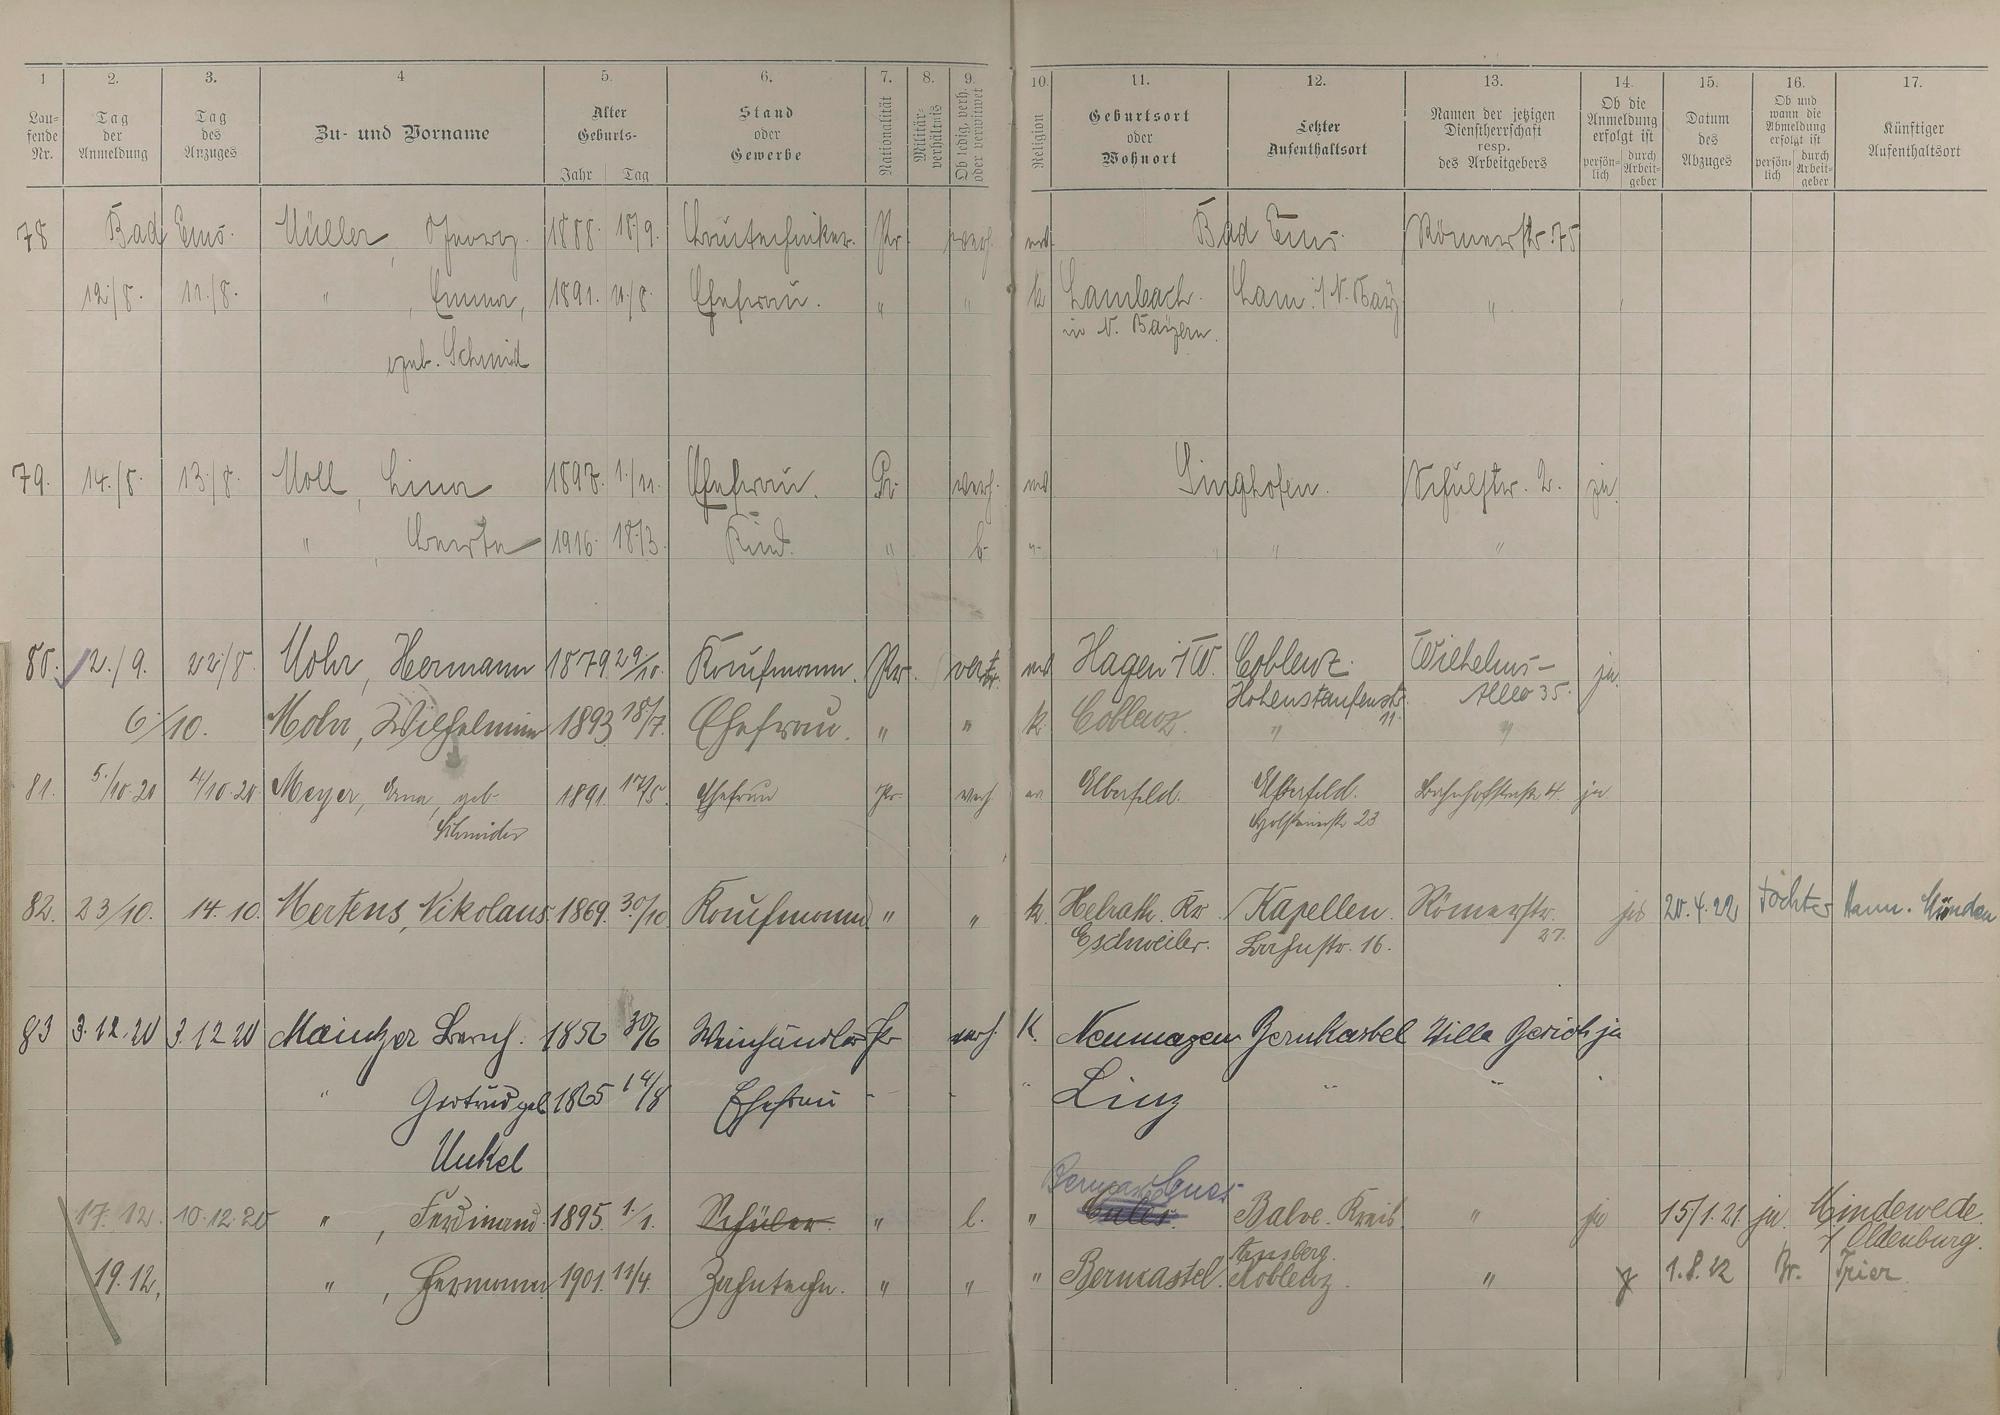 1 2. 3. 4 5. 6. 7. 8. 9. 10. 11. 12. 13. 14. 15. 16. 17.
Lau=
fende
Nr.
Tag
der
Anmeldung
Tag
des
Anzuges
Zu- und Vorname
Alter
Geburts-
Jahr Tag
Stand
oder
Gewerbe
Nationalität
Militär-
verhältnis
Ob ledig, verh.
oder verwitwet
Religion
Geburtsort
oder
Wohnort
Letzter
Aufenthaltsort
Namen der jetzigen
Dienstherrschaft
resp.
des Arbeitgebers
Ob die
Anmeldung
erfolgt ist
persön=
lich
durch
Arbeit-
geber
Datum
des
Abzuges
Ob und
wann die
Abmeldung
erfolgt ist
persön-
lich
durch
Arbeit-
geber
Künftiger
Aufenthaltsort
78 Bad Ems. Müller, Georg. 1888. 18/9. Bautechniker. Pr verh. ev Bad Ems. Römerstr. 75
12./8. 11./8. " , Emma, 1891. 11/8. Ehefrau. " " k Lambach. Lam i/N. Bay "
in N. Bayern.
geb. Schmid
79. 14./8. 13./8. Moll, Lina 1897. 1./11. Ehefrau. Pr. verh. ev Singhofen. Schulstr. 2. ja.
" , Berta 1916. 18./3. Kind. " l. " " "
80. 2./9. 22/8. Mohr, Hermann 1879 29/10. Kaufmann. Pr. ev Hagen i/W. Coblenz. Wilhelms-
Hohenstaufenstr. 11. Allee 35. ja.
6/10. Mohr, Wilhelmine 1893 18/7. Ehefrau. " " k. Coblenz. " "
81. 5./10.20 4/10.20 Meyer, Erna, geb. 1891. 17/5. Ehefrau Pr verh ev Elberfeld. Elberfeld. Bahnhofstraße 4. ja
Schmider Holsteinerstr 23
82. 23/10. 14.10. Mertens, Nikolaus 1869. 30/10. Kaufmann " " k. Helrath. Kr Kapellen. Römerstr. 27. 20.4.22 Tochter Hann. Münden
Eschweiler. Bahnstr. 16.
83 3.12.20 3.12.20 Maintzer Bernh. 1856 30/6 Weinhändler Pr verh. K. Neumagen Bernkastel Villa Berich ja
" Gertrud geb 1865 14/8 Ehefrau " " " Linz " "
Unkel
Bernkastel Cues
17.12. 10.12.20 " , Ferdinand 1895. 1./1. Schüler. " l. " Cues. Balve. Kreis " ja 15/1.21. ja. Mindewede.
Arnsberg. i/ Oldenburg.
19.12. " , Hermann 1901. 11/4. Zahntechn. " " " Berncastel. Koblenz. " j 1.8.22 Br. Trier